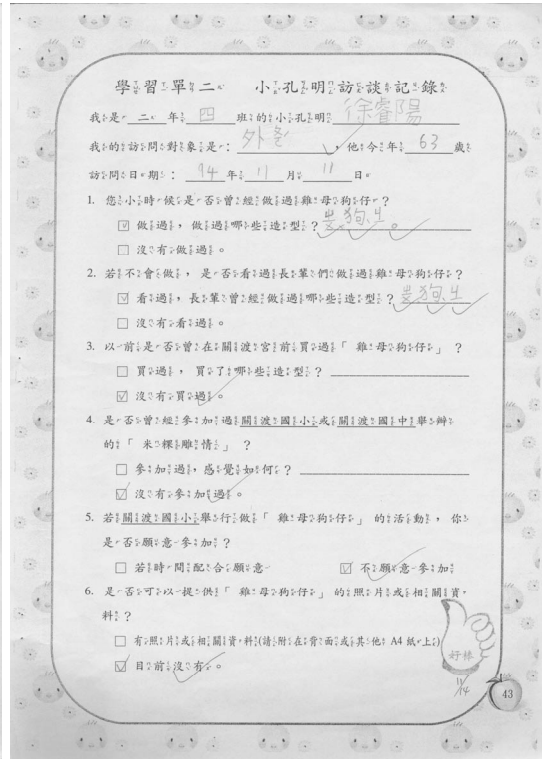 學習單二 小孔明訪談記錄
我是 二 年 四 班的小孔明 徐睿陽
我的訪問對象是：外婆，他今年 63 歲
訪問日期：94 年 11 月 11 日。
1. 您小時候是否曾經做過雞母狗仔？
☑ 做過，做過哪些造型？ 狗、 。
□ 沒有做過。
2. 若不會做，是否看過長輩們做過雞母狗仔？
☑ 看過，長輩曾經做過哪些造型？ 狗、
□ 沒有看過。
3. 以前是否曾在關渡宮前買過「雞母狗仔」？
□ 買過，買了哪些造型？
☑ 沒有買過。
4. 是否曾經參加過關渡國小或關渡國中舉辦
的「米粿雕情」？
□ 參加過，感覺如何？
☑ 沒有參加過。
5. 若關渡國小舉行做「雞母狗仔」的活動，你
是否願意參加？
□ 若時間配合願意 ☑ 不願意參加
6. 是否可以提供「雞母狗仔」的照片或相關資
料？
□ 有照片或相關資料(請附在背面或其他 A4 紙上)
☑ 目前沒有。
好棒
11/14
43